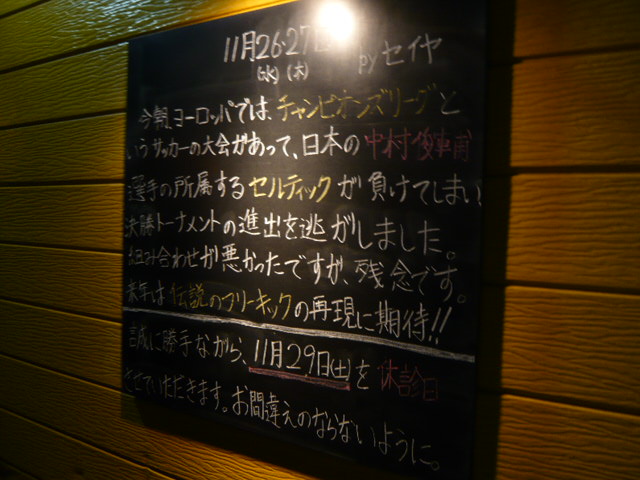 11月26・27日 byセイヤ
(水)(木)
今朝、ヨーロッパでは、チャンピオンズリーグと
いうサッカーの大会があって、日本の中村俊輔
選手の所属するセルティックが負けてしまい
決勝トーナメントの進出を逃がしました。
組み合わせが悪かったですが、残念です。
来年は伝説のフリーキックの再現に期待!!
誠に勝手ながら、11月29日(土)を休診日
させていただきます。お間違えのならないように。